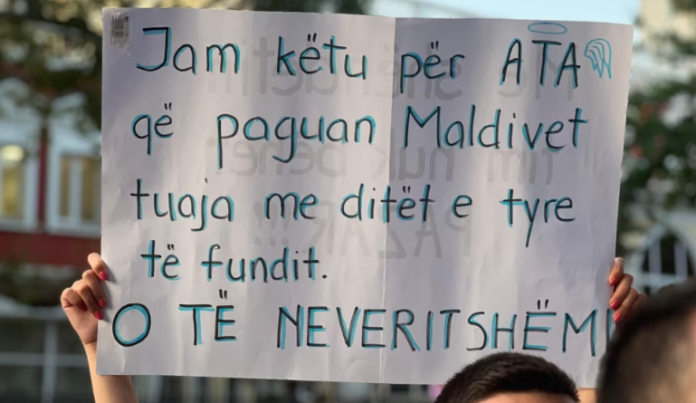 Jam këtu për ATA
që paguan Maldivet
tuaja me ditët e tyre
të fundit.
O TË NEVERITSHËM!